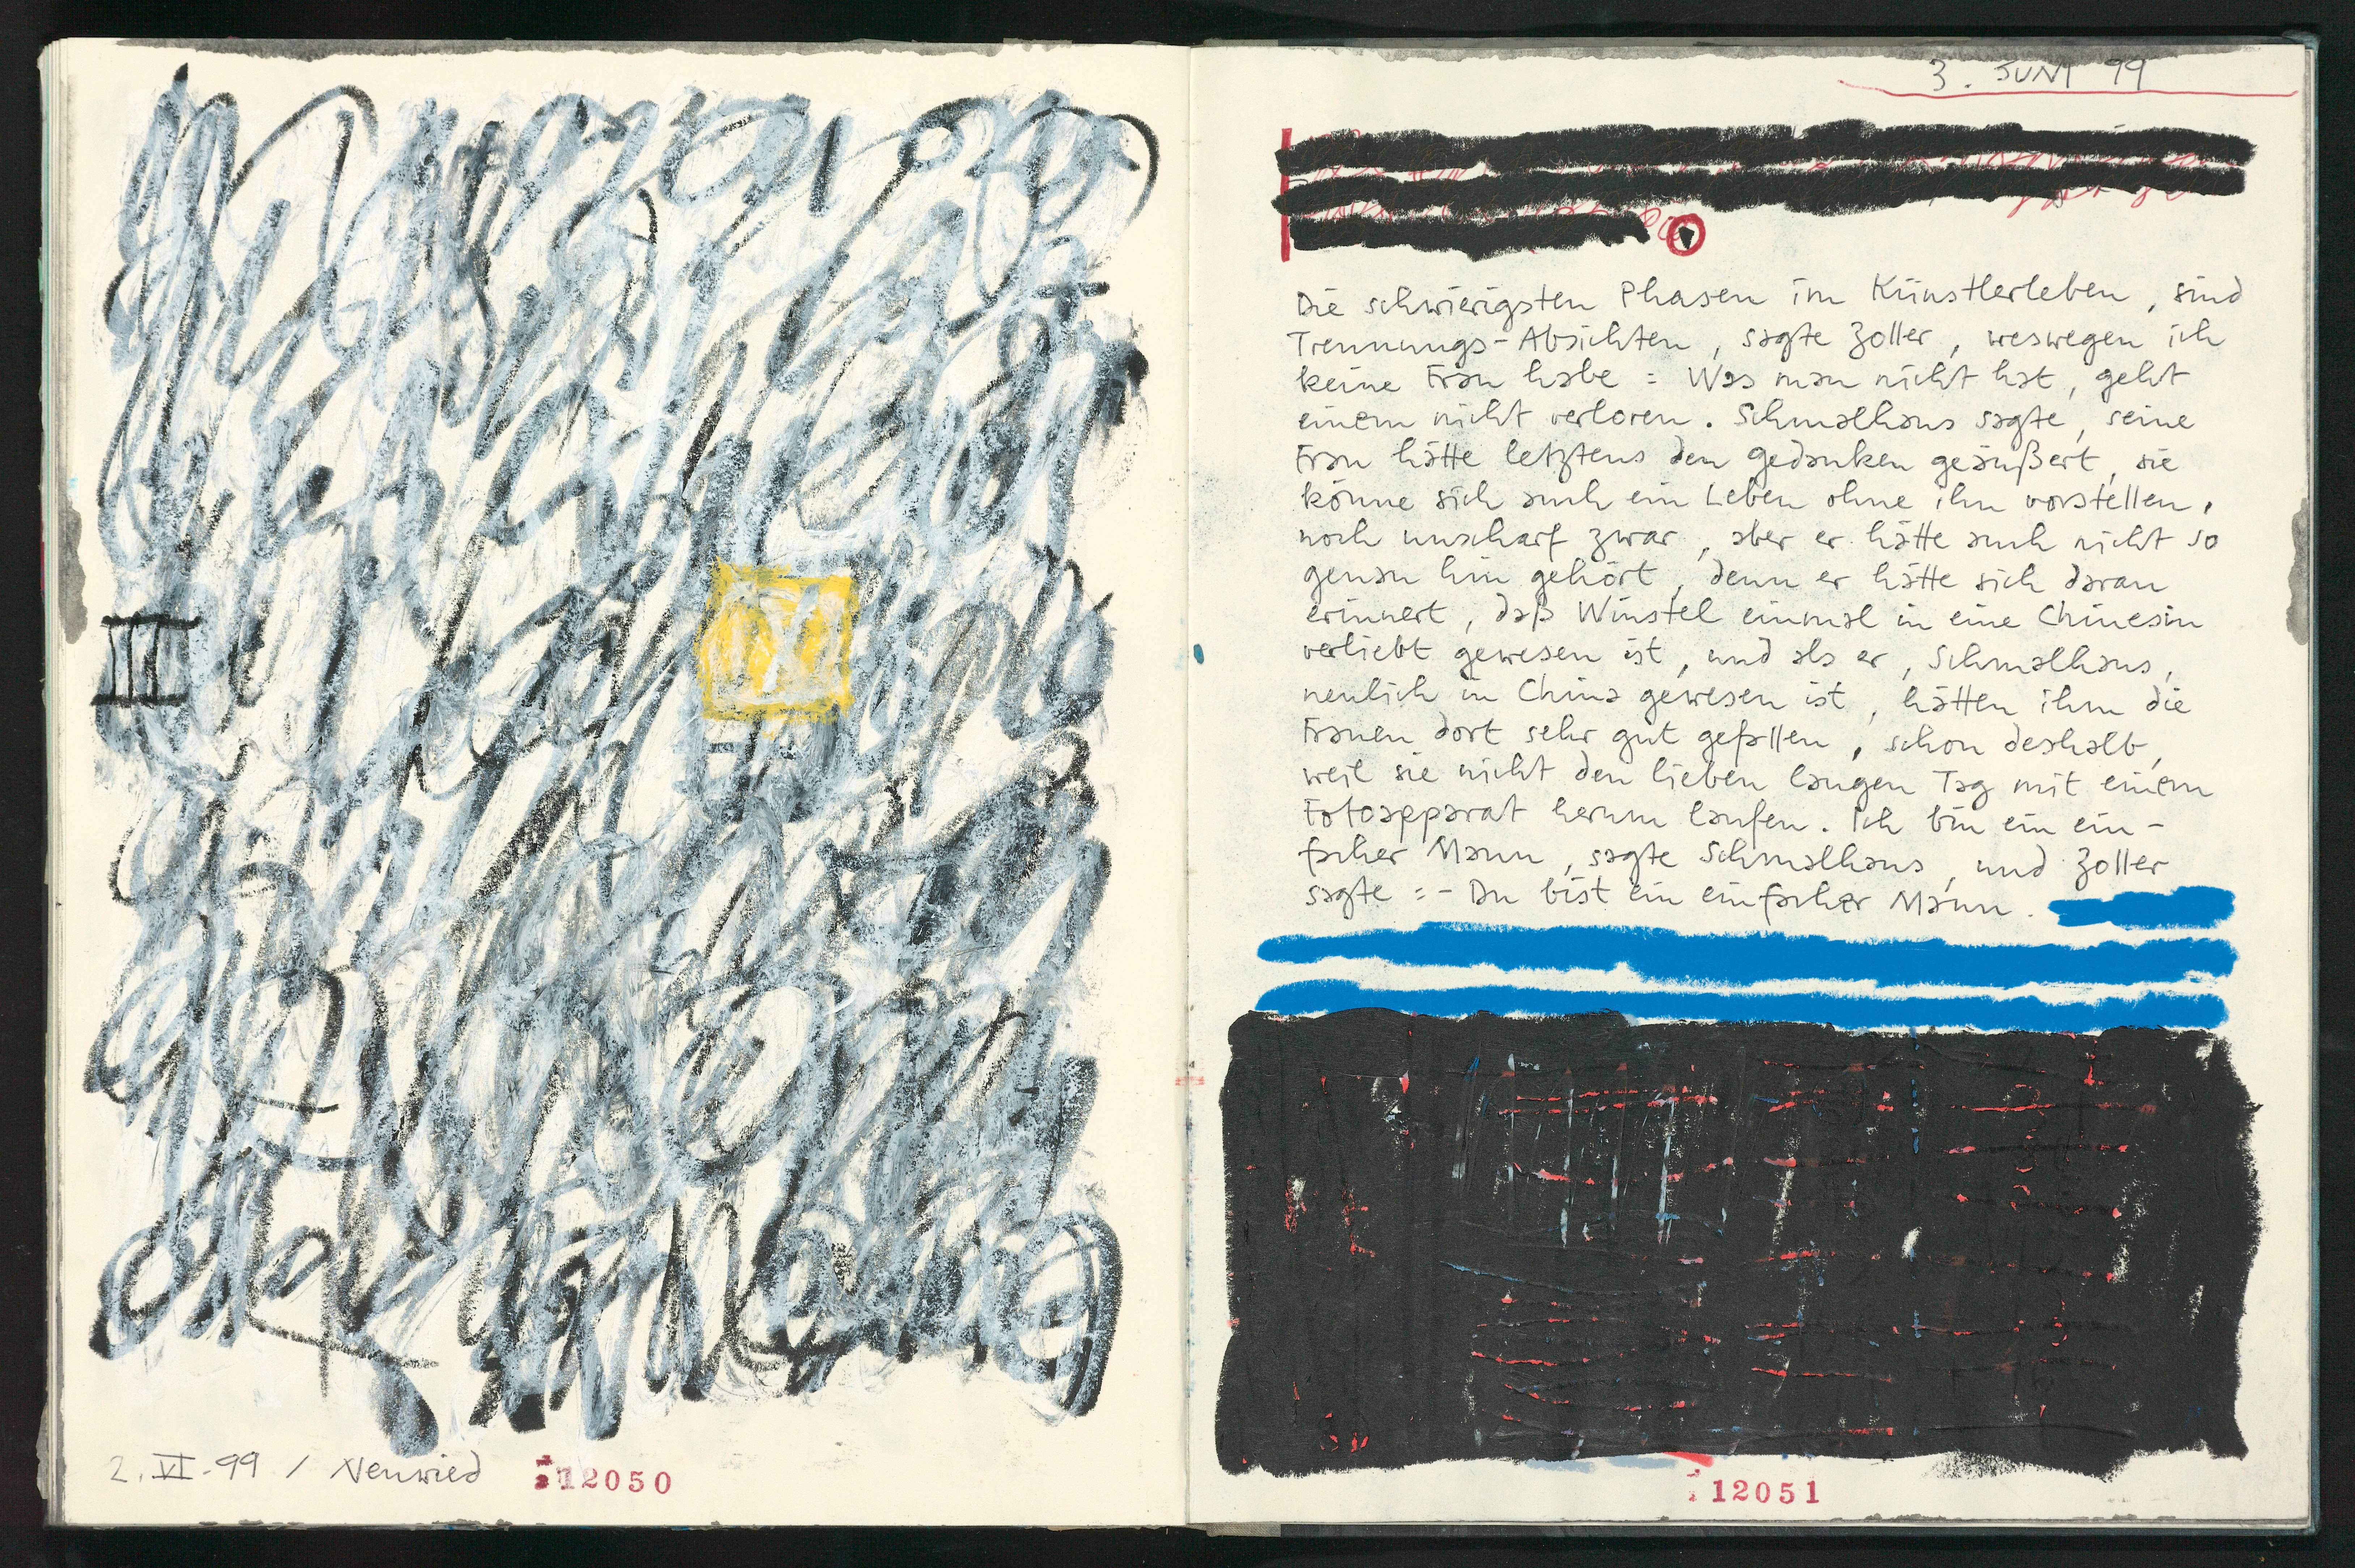 2. VI - 99 / Neuwied
12050
3. JUNI 99
Die schwierigsten Phasen im Künstlerleben, sind
Trennungs-Absichten, sagte Zoller, weswegen ich
keine Frau habe : Was man nicht hat, geht
einem nicht verloren. Schmalhaus sagte, seine
Frau hätte letztens den Gedanken geäußert, sie
könne sich auch ein Leben ohne ihn vorstellen,
noch unscharf zwar, aber er hätte auch nicht so
genau hin gehört, denn er hätte sich daran
erinnert, daß Winstel einmal in eine Chinesin
verliebt gewesen ist, und als er, Schmalhaus,
neulich in China gewesen ist, hätten ihm die
Frauen dort sehr gut gefallen, schon deshalb,
weil sie nicht den lieben langen Tag mit einem
Fotoapparat herum laufen. Ich bin ein ein-
facher Mann, sagte Schmalhaus, und Zoller
sagte : - Du bist ein einfacher Mann.
12051